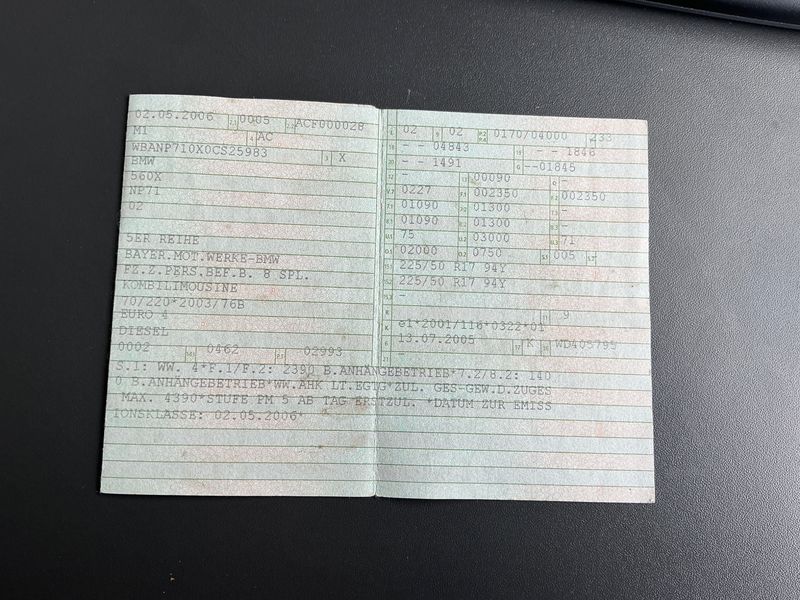 02.05.2006 0005 ACF000028
M1 AC
WBANP710X0CS25983 3 X
BMW
560X
NP71
02
5ER REIHE
BAYER.MOT.WERKE-BMW
FZ.Z.PERS.BEF.B. 8 SPL.
KOMBILIMOUSINE
70/220*2003/76B
EURO 4
DIESEL
0002 0462 02993
02 9 02 P.2 P.4 0170/04000 233
18 - - 04843 19 - - 1846
20 - - 1491 G --01845
12 - 13 00090 Q -
V.7 0227 F.1 002350 F.2 002350
7.1 01090 7.2 01300 7.3 -
8.1 01090 8.2 01300 8.3 -
U.1 75 U.2 03000 U.3 71
O.1 02000 O.2 0750 S.1 005 S.2
15.1 225/50 R17 94Y
15.2 225/50 R17 94Y
15.3 -
R 11 9
K e1*2001/116*0322*01
6 13.07.2005 17 K 16 WD405795
21
S.1: WW. 4*F.1/F.2: 2390 B.ANHÄNGEBETRIEB*7.2/8.2: 140
0 B.ANHÄNGEBETRIEB*WW.AHK LT.EGTG*ZUL. GES-GEW.D.ZUGES
MAX. 4390*STUFE PM 5 AB TAG ERSTZUL. *DATUM ZUR EMISS
IONSKLASSE: 02.05.2006*